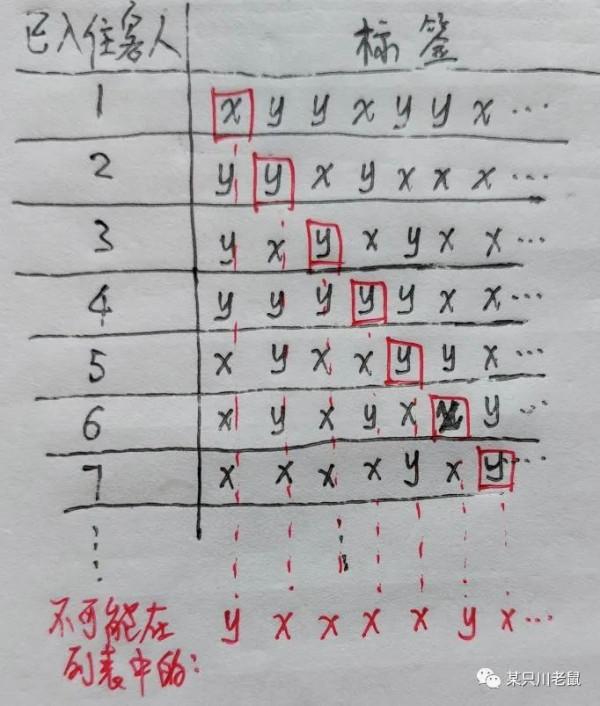 已入住客人 标签
1 x y y x y y x ...
2 y y x y x x x ...
3 y x y x y x x ...
4 y y y y y x x ...
5 x y x x y y x ...
6 x y x y x x y ...
7 x x x x y x y ...
不可能在
列表中的: y x x x x y x ...
某只川老鼠